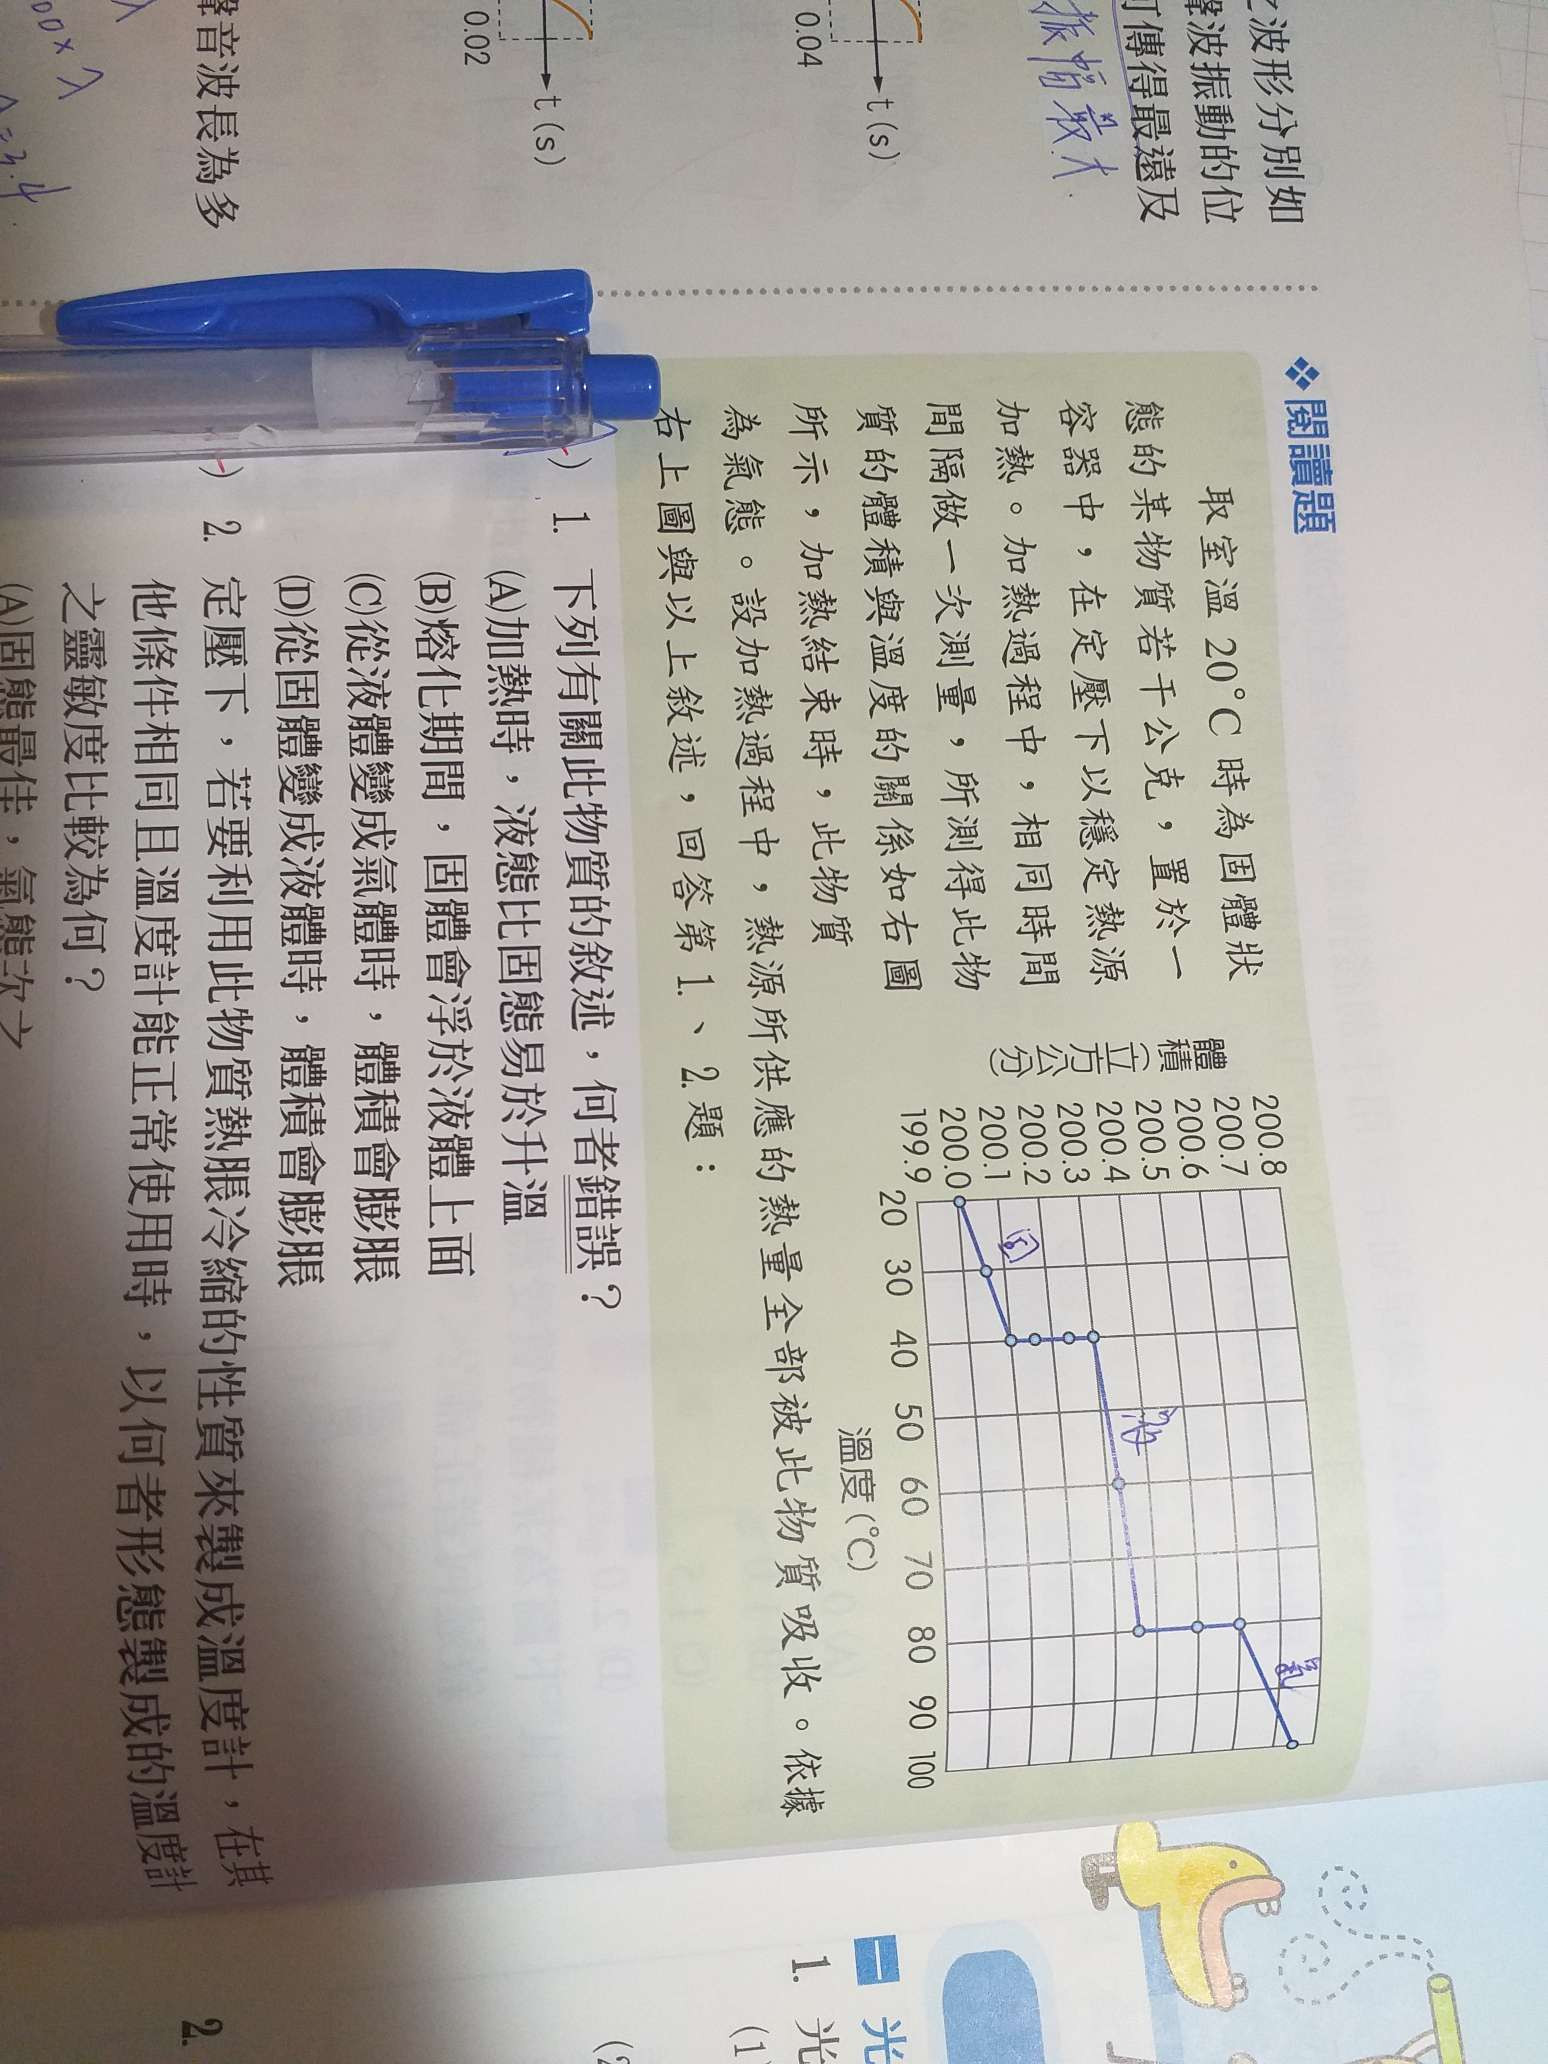 之波形分別如
聲波振動的位
可傳得最遠及
振幅最大
0.04
t (s)
0.02
t (s)
聲音波長為多
❖閱讀題
取室溫 20°C 時為固體狀
態的某物質若干公克，置於一
容器中，在定壓下以穩定熱源
加熱。加熱過程中，相同時間
間隔做一次測量，所測得此物
質的體積與溫度的關係如右圖
所示，加熱結束時，此物質
為氣態。設加熱過程中，熱源所供應的熱量全部被此物質吸收。依據
右上圖與以上敘述，回答第 1.、2. 題：
體積（立方公分）
200.8
200.7
200.6
200.5
200.4
200.3
200.2
200.1
200.0
199.9
固
液
氣
20 30 40 50 60 70 80 90 100
溫度 (°C)
) 1. 下列有關此物質的敘述，何者錯誤？
(A)加熱時，液態比固態易於升溫
(B)熔化期間，固體會浮於液體上面
(C)從液體變成氣體時，體積會膨脹
(D)從固體變成液體時，體積會膨脹
) 2. 定壓下，若要利用此物質熱脹冷縮的性質來製成溫度計，在其
他條件相同且溫度計能正常使用時，以何者形態製成的溫度計
之靈敏度比較為何？
(A)固態最佳，氣態次之
一 光
1. 光
(1)
(2
2.